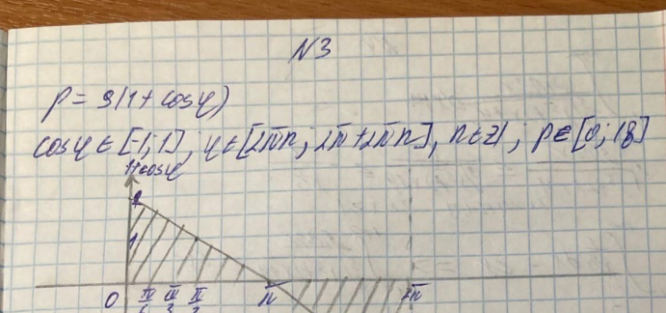 N3
ρ = 9(1 + cosφ)
cosφ ∈ [-1; 1], φ ∈ [2πn; 2π+2πn], n∈Z; ρ∈[0; 18]
1+cosφ
2
1
0 π/6 π/3 π/2 π 2π